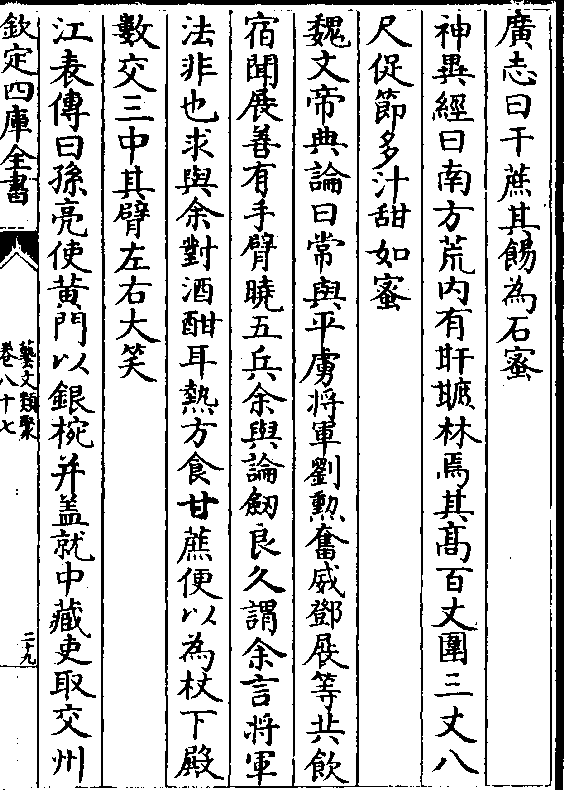 廣志曰干蔗其餳為石蜜
神異經曰南方荒内有㽏𤮜林焉其髙百丈圍三丈八
尺促節多汁甜如蜜
魏文帝典論曰常與平虜将軍劉勲奮威鄧展等共飲
宿聞展善有手臂曉五兵余與論劒良久謂余言将軍
法非也求與余對酒酣耳熱方食甘蔗便以為杖下殿
數交三中其臂左右大笑
江表傳曰孫亮使黄門以銀椀并盖就中藏吏取交州
欽定四庫全書
藝文類聚
卷八十七
二十九